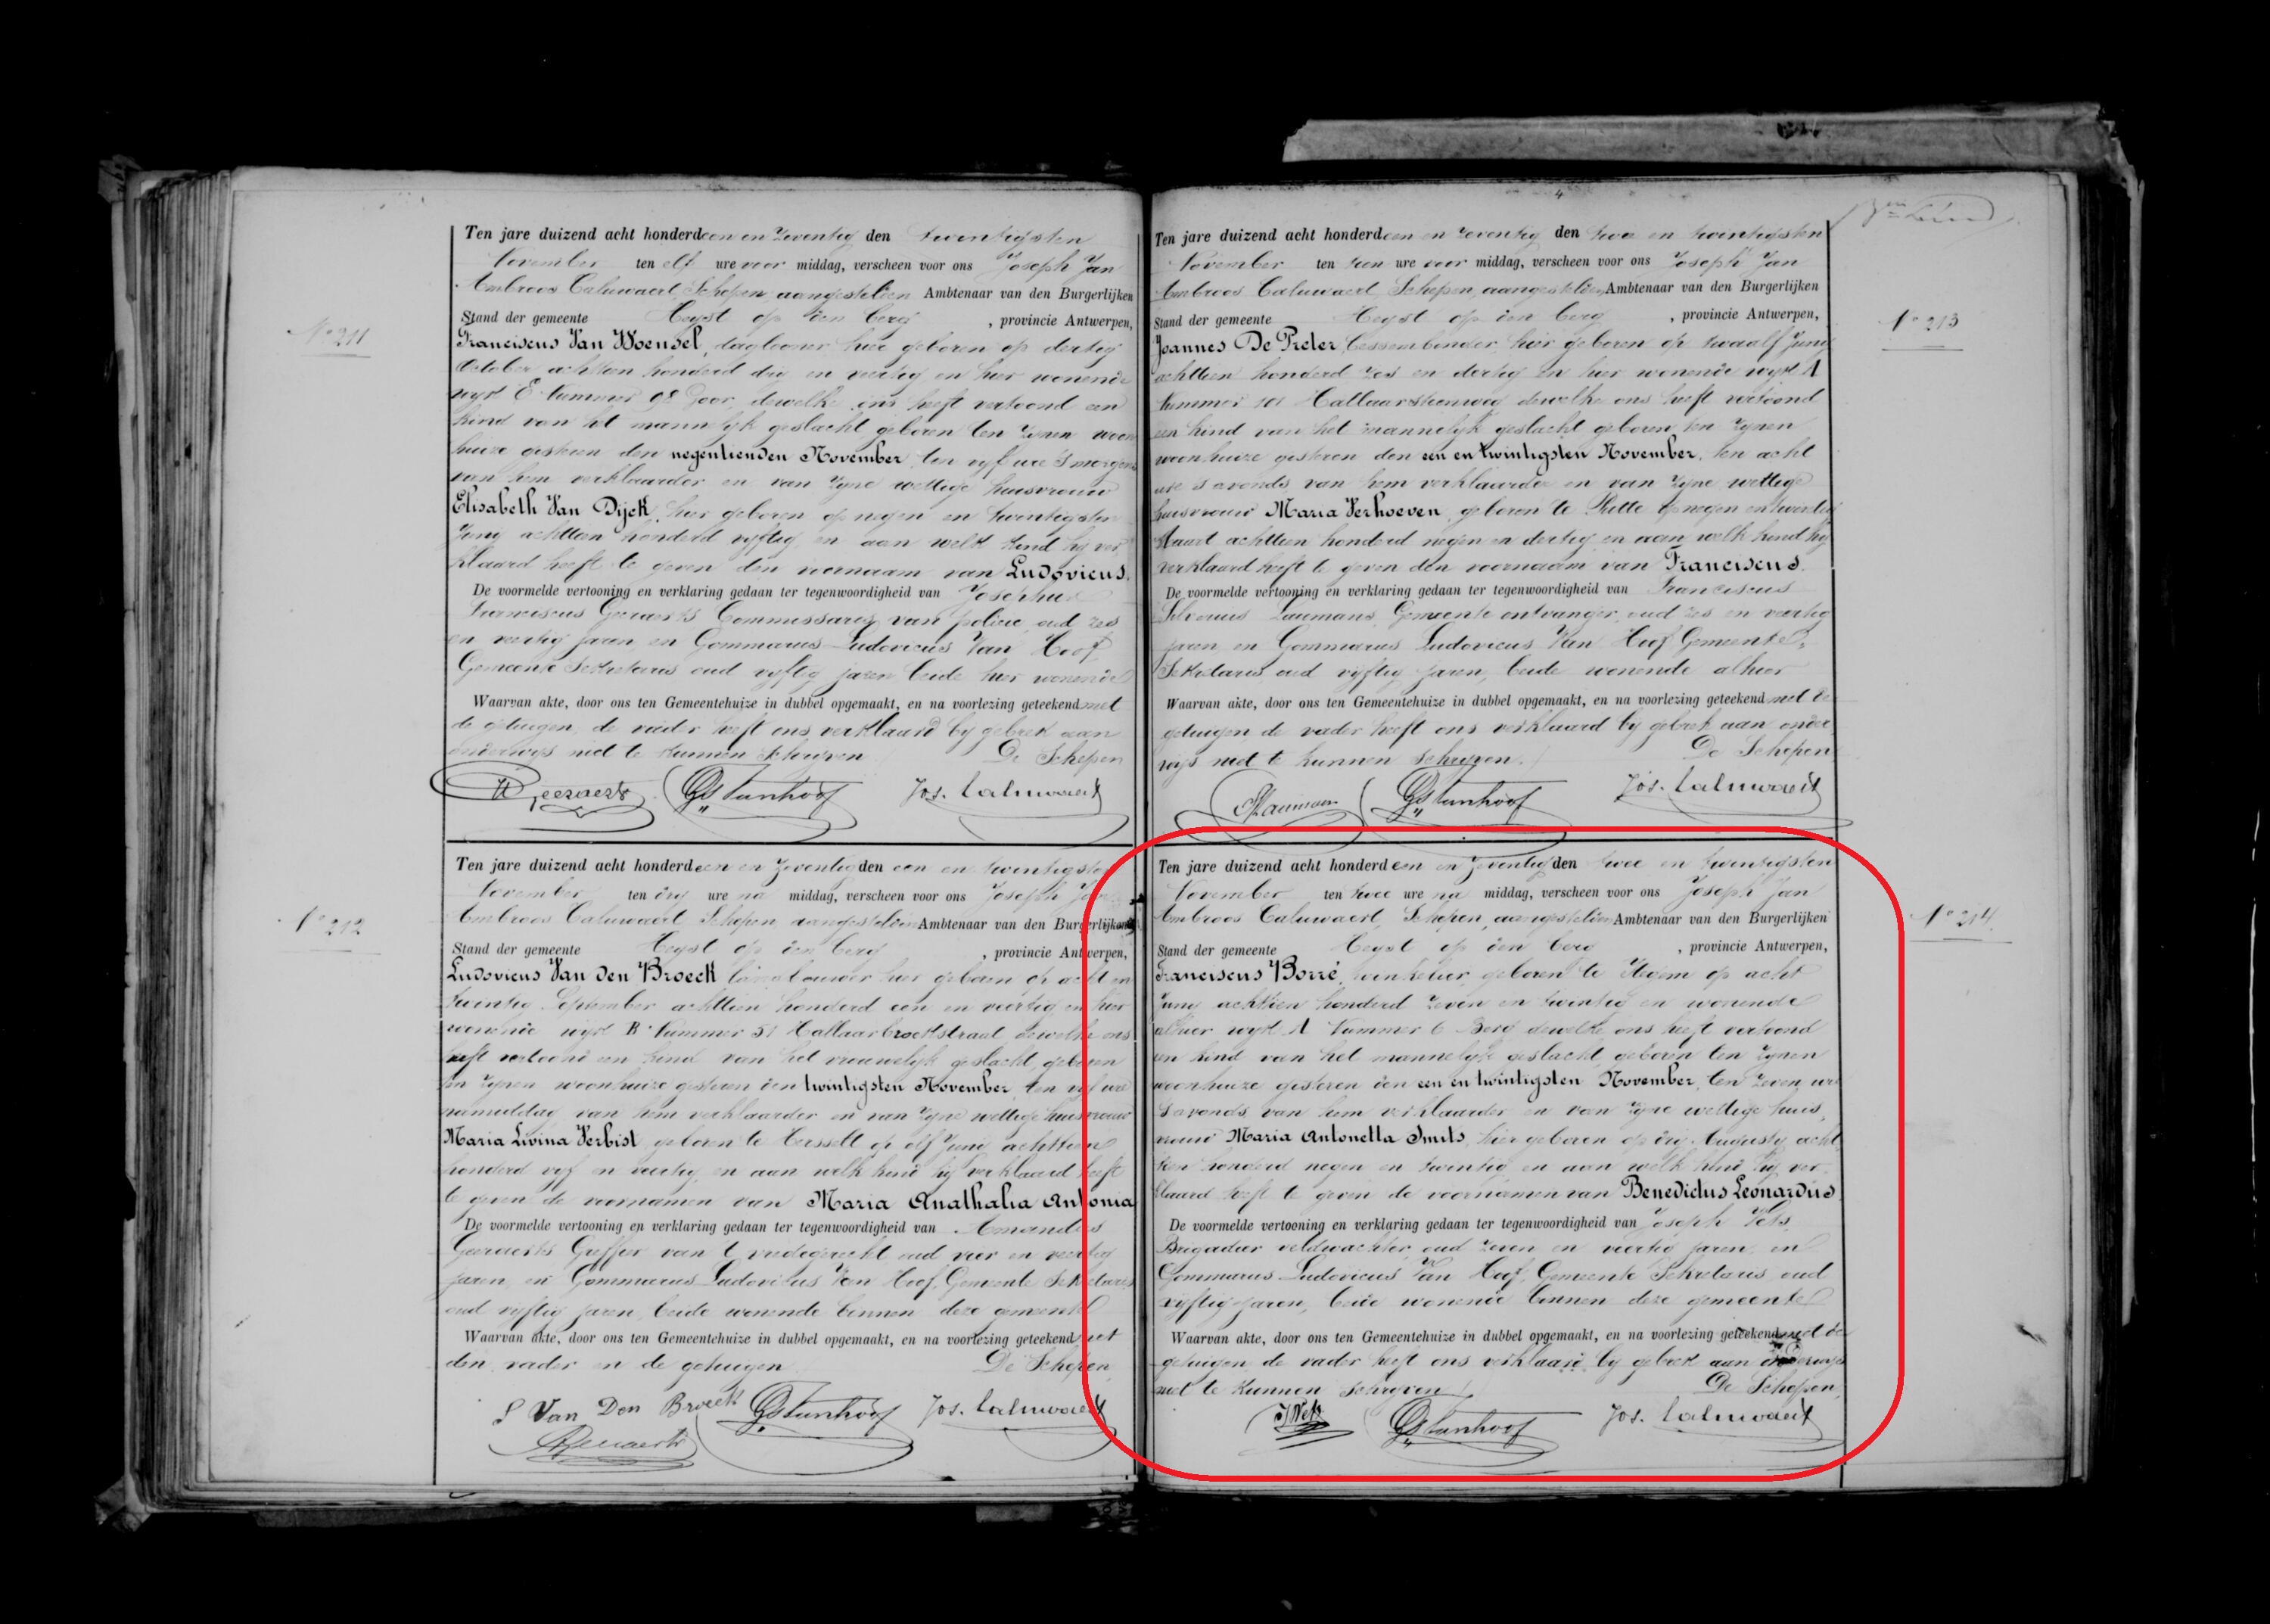 4
Ten jare duizend acht honderd een en zeventig den twintigsten
November ten elf ure voor middag, verscheen voor ons Joseph Jan
Ambroos Caluwaert Schepen aangestelden Ambtenaar van den Burgerlijken
Stand der gemeente Heyst op den berg , provincie Antwerpen,
Franciscus Van Woensel, daglooner hier geboren op dertig
October achttien honderd dry en veertig en hier wonende
wyk E Nummer 98 Goor, dewelke ons heeft vertoond een
kind van het mannelyk geslacht geboren ten zynen woon
huize gisteren den negentienden November, ten vyf ure s'morgens
van hem verklaarder en van zyne wettige huisvrouw
Elisabeth Van Dijck, hier geboren op negen en twintigsten
Juny achttien honderd vyftig, en aan welk kind hy ver
klaard heeft te geven den voornaam van Ludovicus.
De voormelde vertooning en verklaring gedaan ter tegenwoordigheid van Josephus
Franciscus Geeraerts Commissaris van policie, oud zes
en veertig jaren, en Gommarus Ludovicus Van Hoof,
Gemeente Sekretaris oud vyftig jaren beide hier wonende
Waarvan akte, door ons ten Gemeentehuize in dubbel opgemaakt, en na voorlezing geteekend met
de getuigen, de vader heeft ons verklaard by gebrek aan
onderwys niet te kunnen schryven De Schepen
Geeraerts GLVanhoof Jos. Caluwaert
No 211
Ten jare duizend acht honderd een en zeventig den een en twintigsten
November ten dry ure na middag, verscheen voor ons Joseph Jan
Ambroos Caluwaert Schepen, aangestelden Ambtenaar van den Burgerlijken
Stand der gemeente Heyst op den berg , provincie Antwerpen,
Ludovicus Van Den Broeck hier geboren op acht en
twintig September achttien honderd een en veertig en hier
wonende wyk B Nummer 51 Hallaarbroekstraat dewelke ons
heeft vertoond een kind van het vrouwelyk geslacht, geboren
ten zynen woonhuize gisteren den twintigsten November, ten vyf ure
namiddag van hem verklaarder en van zyne wettige huisvrouw
Maria Livina Verbist, geboren te Herssellt op elf Juny achttien
honderd vyf en veertig, en aan welk kind hy verklaard heeft
te geven de voornamen van Maria Anathalia Antonia
De voormelde vertooning en verklaring gedaan ter tegenwoordigheid van Amandus
Geeraerts Griffier van t vredegerecht, oud vier en veertig
jaren, en Gommarus Ludovicus Van Hoof, Gemeente Sekretaris
oud vyftig jaren, beide wonende binnen deze gemeente
Waarvan akte, door ons ten Gemeentehuize in dubbel opgemaakt, en na voorlezing geteekend met
den vader en de getuigen De Schepen,
L Van Den Broeck GLVanhoof Jos. Caluwaert
AGeeraerts
No 212
Ten jare duizend acht honderd een en zeventig den twee en twintigsten
November ten tien ure voor middag, verscheen voor ons Joseph Jan
Ambroos Caluwaert, Schepen, aangestelden Ambtenaar van den Burgerlijken
Stand der gemeente Heyst op den berg , provincie Antwerpen,
Joannes De Preter, bessembinder, hier geboren op twaalf Juny
achttien honderd zes en dertig en hier wonende wyk A
Nummer 101 Hallaarsteenweg dewelke ons heeft vertoond
een kind van het mannelyk geslacht geboren, ten zynen
woonhuize gisteren den een en twintigsten November, ten acht
ure s'avonds, van hem verklaarder en van zyne wettige
huisvrouw Maria Verhoeven, geboren te Putte op negen en twintig
Maart achttien honderd negen en dertig en aan welk kind hy
verklaard heeft te geven den voornaam van Franciscus.
De voormelde vertooning en verklaring gedaan ter tegenwoordigheid van Franciscus
Laumans, Gemeente ontvanger, oud zes en veertig
jaren, en Gommarus Ludovicus Van Hoof Gemeente
Sekretaris, oud vyftig jaren, beide wonende alhier
Waarvan akte, door ons ten Gemeentehuize in dubbel opgemaakt, en na voorlezing geteekend met de
getuigen, de vader heeft ons verklaard by gebrek aan onder
wys niet te kunnen schryven. De Schepen
FLaumans GLVanhoof Jos. Caluwaert
No 213
Ten jare duizend acht honderd een en zeventig den twee en twintigsten
November ten twee ure na middag, verscheen voor ons Joseph Jan
Ambroos Caluwaert, Schepen, aangestelden Ambtenaar van den Burgerlijken
Stand der gemeente Heyst op den berg , provincie Antwerpen,
Franciscus Borré, winkelier, geboren te Itegem op acht
Juny achttien honderd zeven en twintig en wonende
alhier wyk A Nummer 6 Berg dewelke ons heeft vertoond
een kind van het mannelyk geslacht, geboren ten zynen
woonhuize gisteren den een en twintigsten November, ten zeven ure
s'avonds van hem verklaarder en van zyne wettige huis,
vrouw Maria Antonetta Smits, hier geboren op dry Augusty acht
tien honderd negen en twintig en aan welk kind hy ver
klaard heeft te geven de voornamen van Benedictus Leonardus
De voormelde vertooning en verklaring gedaan ter tegenwoordigheid van Joseph Wets,
Brigadier veldwachter, oud zeven en veertig jaren, en
Gommarus Ludovicus Van Hoof, Gemeente Sekretaris, oud
vyftig jaren, beide wonende binnen deze gemeente
Waarvan akte, door ons ten Gemeentehuize in dubbel opgemaakt, en na voorlezing geteekend met de
getuigen, de vader heeft ons verklaard by gebrek aan onderwys
niet te kunnen schryven. De Schepen,
JWets GLVanhoof Jos. Caluwaert
No 214.